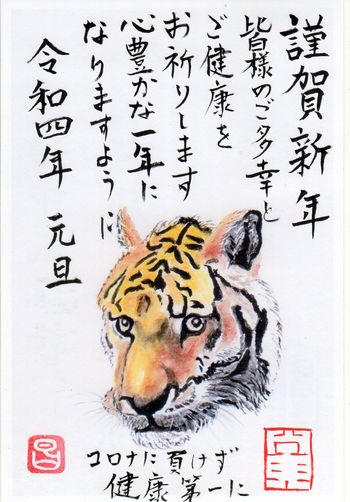 謹賀新年
皆様のご多幸と
ご健康を
お祈りします
心豊かな一年に
なりますように
令和四年 元旦
コロナに負けず
健康第一に